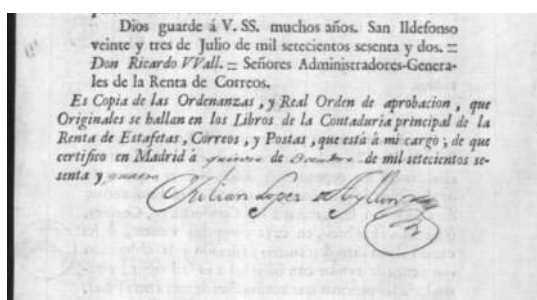 Dios guarde á V. SS. muchos años. San Ildefonso
veinte y tres de Julio de mil setecientos sesenta y dos. =
Don Ricardo VVall. = Señores Administradores-Genera-
les de la Renta de Correos.
Es Copia de las Ordenanzas, y Real Orden de aprobacion, que
Originales se hallan en los Libros de la Contaduría principal de la
Renta de Estafetas, Correos, y Postas, que está à mi cargo; de que
certifico en Madrid à quince de de mil setecientos se-
senta y
Julian Lopez de Ayllon